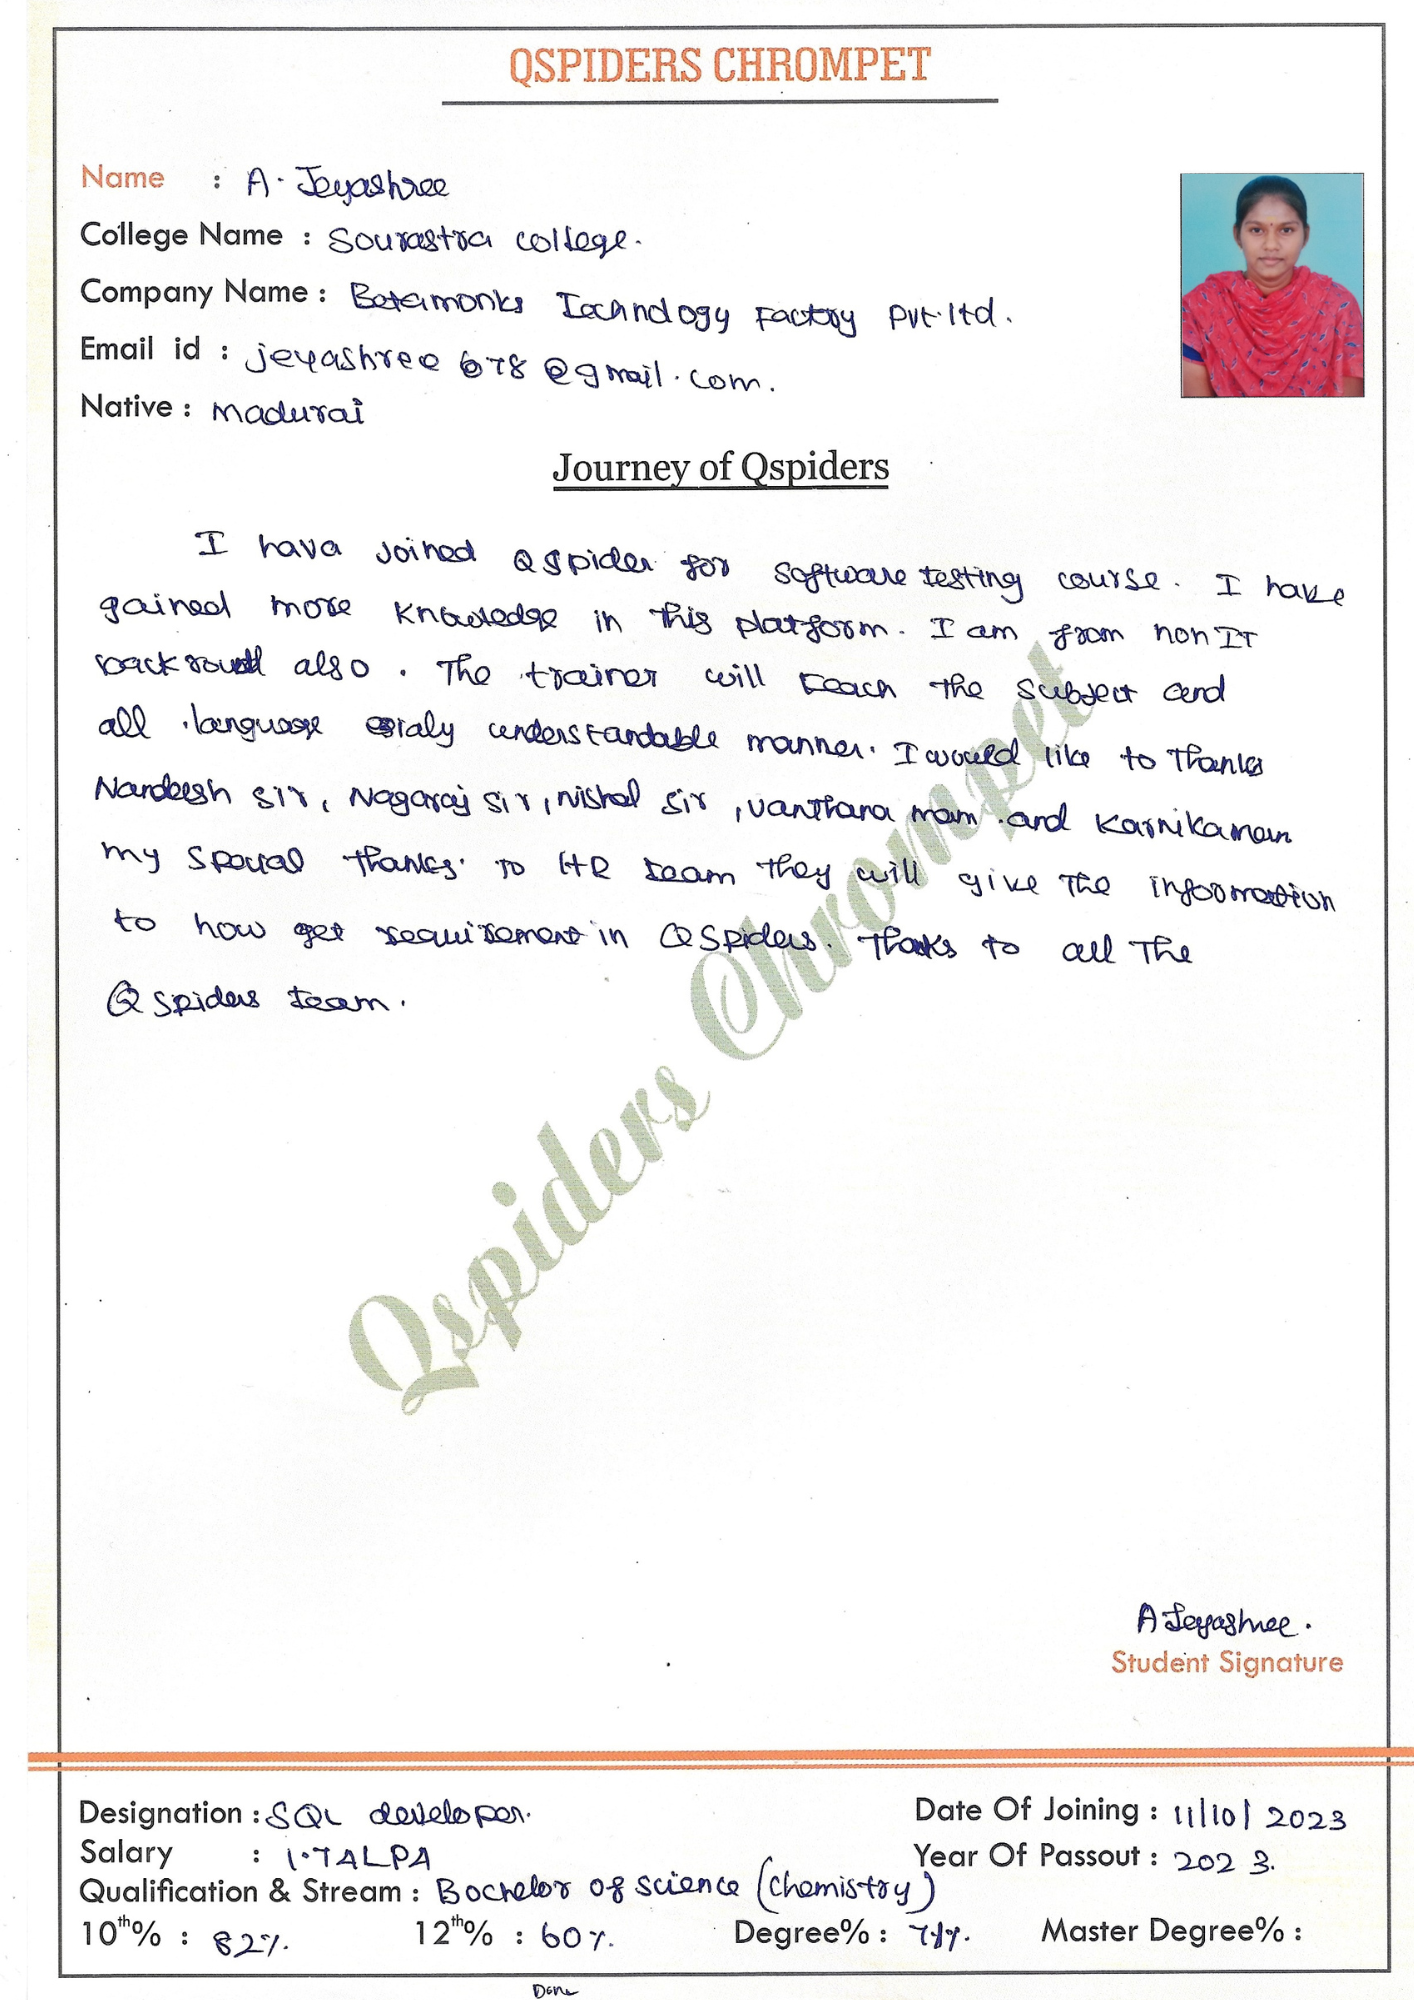 QSPIDERS CHROMPET
Name : A. Jeyashree
College Name : Sourastra college.
Company Name : Betamonks Technology Factory Pvt.ltd.
Email id : jeyashree678@gmail.com.
Native : Madurai
Journey of Qspiders
I hava joined QSpider for software testing course. I have
gained more knowledge in this platform. I am from non IT
also. The trainer will teach the subject and
all language understandable manner. I would like to thanks
Nandeesh sir, Nagaraj sir, Nishal sir, Vanthana mam and Karnika mam
my special thanks to HR team they will give the information
to how get requirement in QSpiders. Thanks to all The
QSpiders team.
Qspiders Chrompet
A Jeyashree.
Student Signature
Designation : SQL developer. Date Of Joining : 11/10/2023
Salary : 1.7ALPA Year Of Passout : 2023.
Qualification & Stream : Bachelor of science (chemistry)
10th% : 82%. 12th% : 60%. Degree% : Master Degree% :
Done